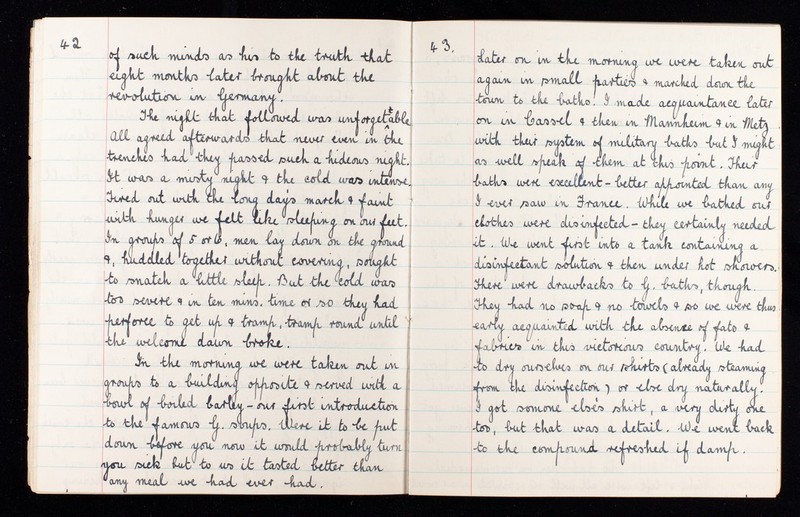 42
of such minds as his to the truth that
eight months later brought about the
revolution in Germany.
The night that followed was unforgettable
All agreed afterwards that never even in the
trenches had they passed such a hideous night.
It was a misty night & the cold was intense.
Tired out with the long day's march & faint
with hunger we felt like sleeping on our feet.
In groups of 5 or 6, men lay down on the ground
&, huddled together without covering, sought
to snatch a little sleep. But the cold was
too severe & in ten mins. time or so they had
perforce to get up & tramp, tramp round until
the welcome dawn broke.
In the morning we were taken out in
groups to a building opposite & served with a
bowl of boiled barley - our first introduction
to the famous G. soups. Were it to be put
down before you now it would probably turn
you sick but to us it tasted better than
any meal we had ever had.
43.
Later on in the morning we were taken out
again in small parties & marched down the
town to the baths. I made acquaintance later
on in Cassel & then in Mannheim & in Metz
with their system of military baths but I might
as well speak of them at this point. Their
baths were excellent - better appointed than any
I ever saw in France. While we bathed our
clothes were disinfected - they certainly needed
it. We went first into a tank containing a
disinfectant solution & then under hot showers.
There were drawbacks to G. baths, though.
They had no soap & no towels & so we were thus
early acquaintid with the absence of fats &
fabrics in this victorious country. We had
to dry ourselves on our shirts (already steaming
from the disinfection) or else dry naturally.
I got somone else's shirt, a very dirty one
too, but that was a detail. We went back
to the compound refreshed if damp.